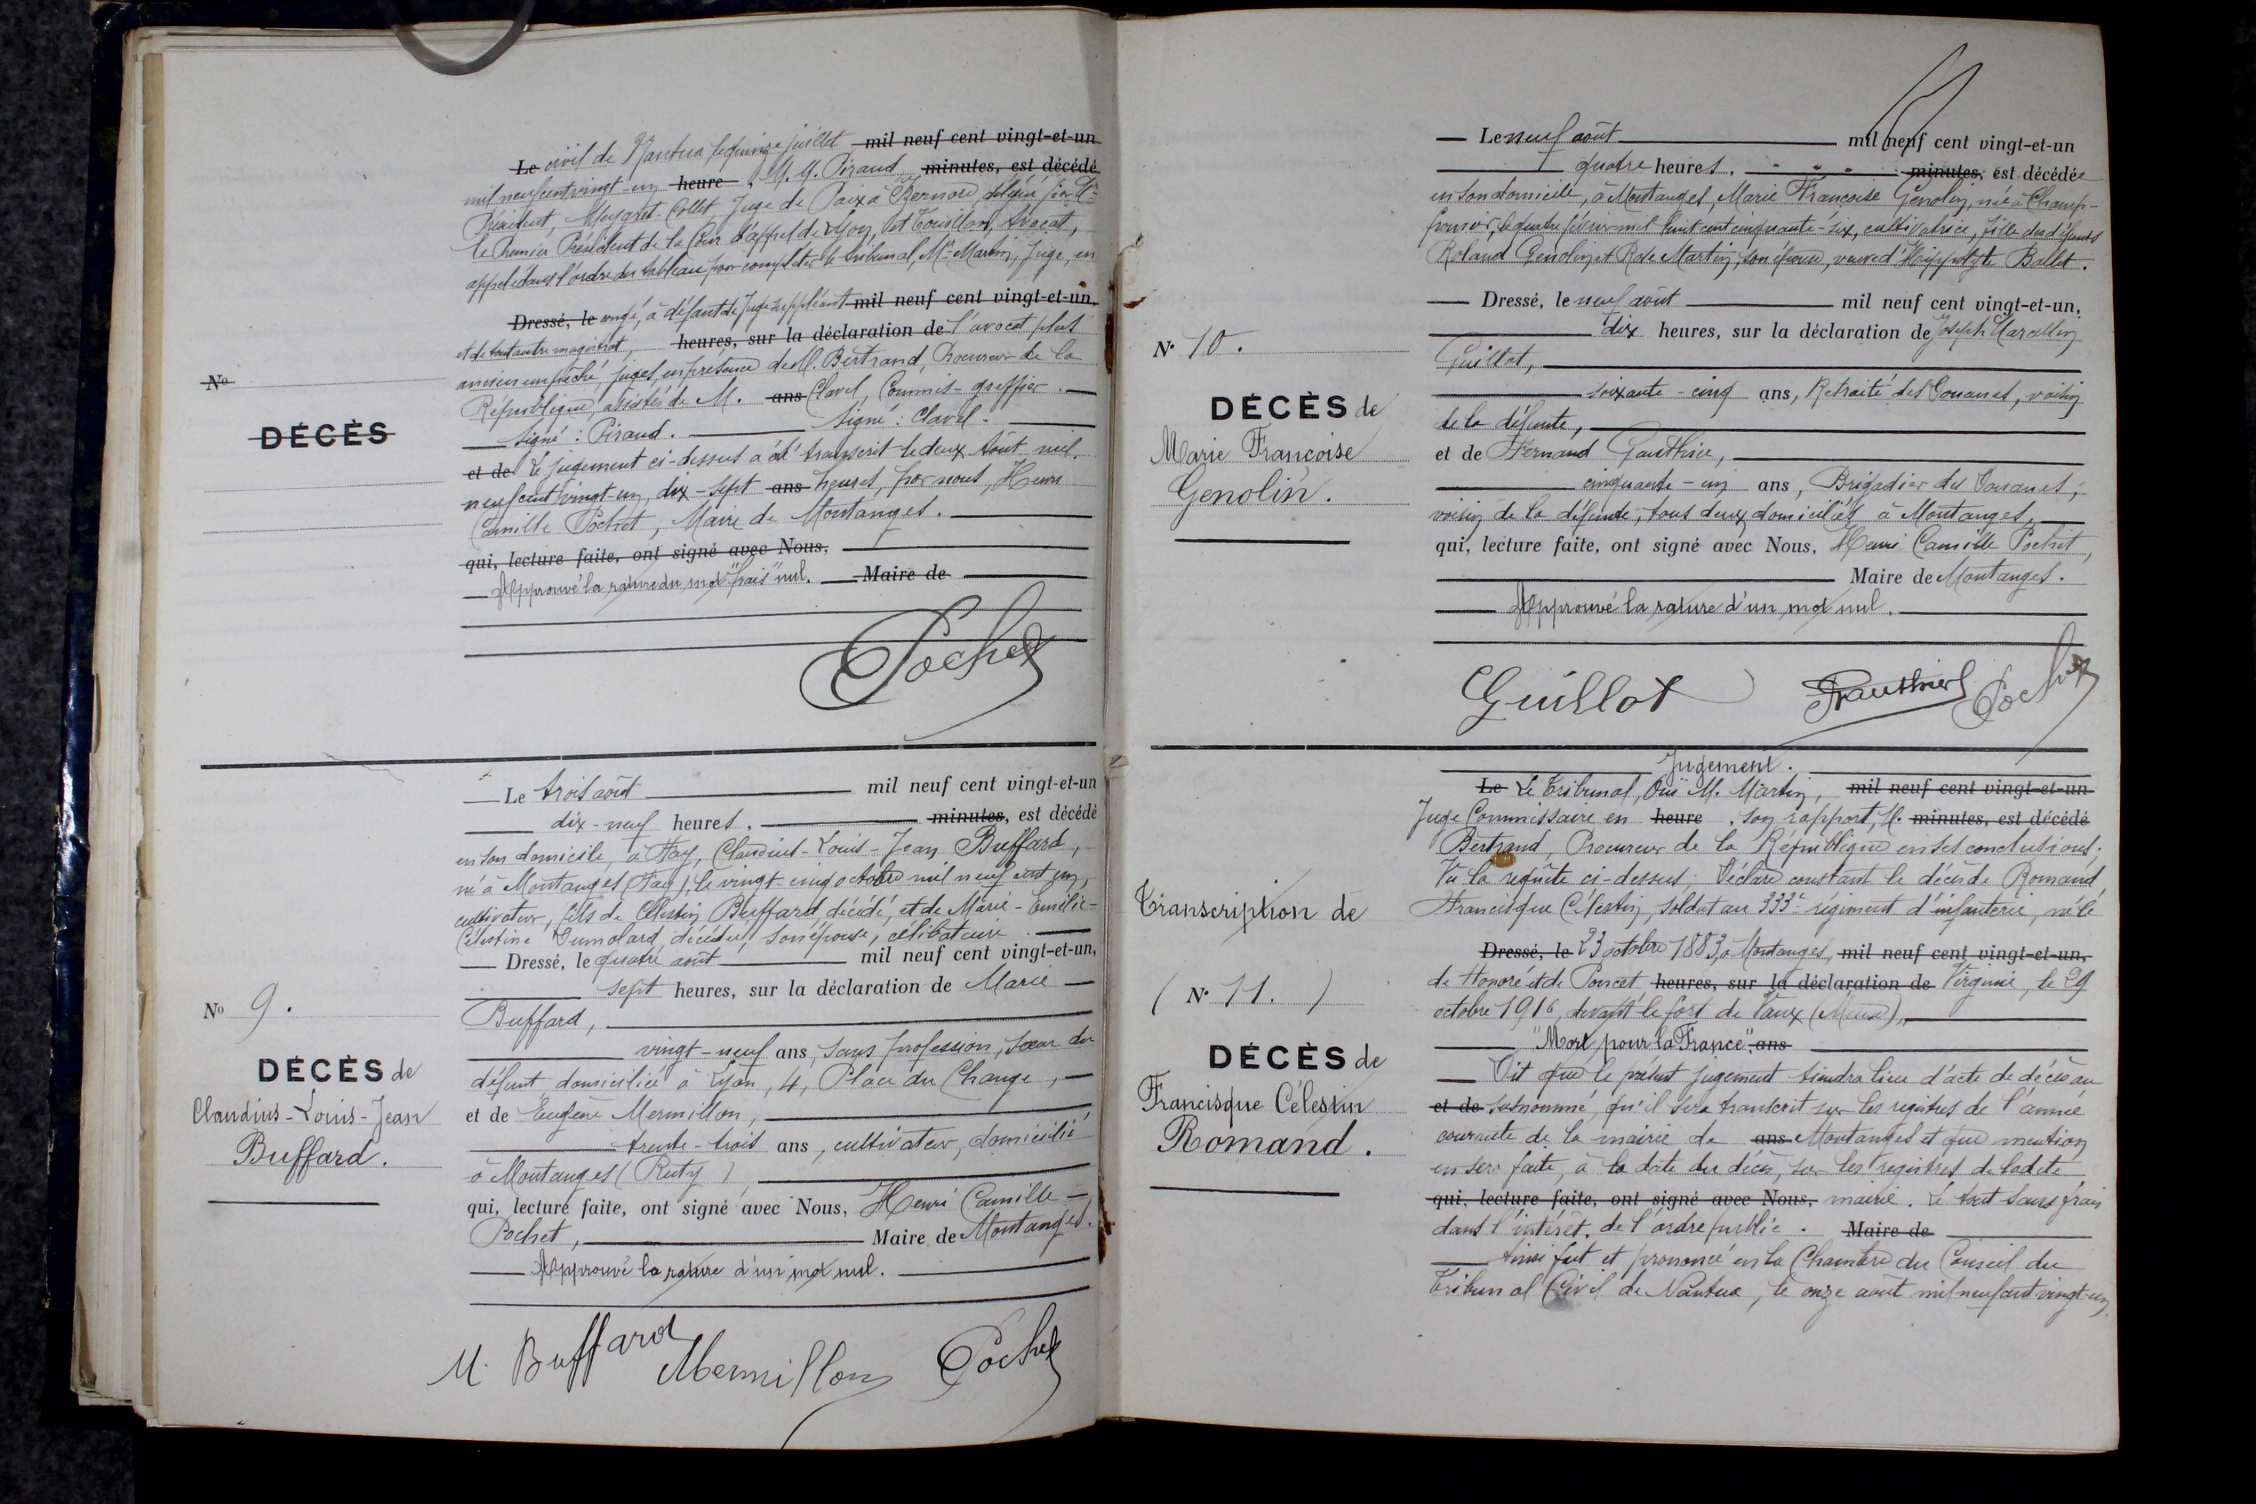 Le civil de Nantua le quinze juillet mil neuf cent vingt-et-un
mil neuf cent vingt-un heure, M. M. Piraud, minutes, est décédé
Président, Meygret-Collet, Juge de Paix à Bernard, délégué par Mr
le Premier Président de la Cour d'appel de Lyon, et Touillon, Avocat,
appelé dans l'ordre du tableau pour compléter le tribunal, Mr Martin, Juge, en
Dressé, le congé, à défaut de Juge suppléant mil neuf cent vingt-et-un,
et de tout autre magistrat, heures, sur la déclaration de l'avocat plus
ancien empêché, juges, en présence de M. Bertrand, Procureur de la
République, assistés de M. ans Clavel, Commis-greffier.
Signé : Piraud. Signé : Clavel.
et de Le jugement ci-dessus a été transcrit le deux Août mil
neuf cent vingt-un, dix-sept ans heures, par nous, Henri
Camille Pochet, Maire de Montanges.
qui, lecture faite, ont signé avec Nous,
Approuvé la rature du mot "frais" nul. Maire de
Pochet
No
DÉCÈS
Le trois août mil neuf cent vingt-et-un
dix-neuf heures. minutes, est décédé
en son domicile, à Tay, Claudius-Louis-Jean Buffard,
né à Montanges (Tay), le vingt-cinq octobre mil neuf cent un,
cultivateur, fils de Célestin Buffard, décédé, et de Marie-Emélie-
Célestine Dumolard, décédée, son épouse, célibataire.
Dressé, le quatre août mil neuf cent vingt-et-un,
sept heures, sur la déclaration de Marie
Buffard,
vingt-neuf ans, sans profession, sœur du
défunt, domiciliée à Lyon, 4, Place du Change,
et de Eugène Mermillon,
trente-trois ans, cultivateur, domicilié
à Montanges (Ruty)
qui, lecture faite, ont signé avec Nous, Henri Camille
Pochet, Maire de Montanges.
Approuvé la rature d'un mot nul.
M. Buffard Mermillon Pochet
No 9.
DÉCÈS de
Claudius-Louis-Jean
Buffard.
Le neuf août mil neuf cent vingt-et-un
quatre heures. minutes, est décédée
en son domicile, à Montanges, Marie Françoise Genolin, née à Champ-
fromier, le quatre février mil huit cent cinquante-six, cultivatrice, fille des défunts
Roland Genolin et Rose Martin, son épouse, veuve d'Hippolyte Ballet.
Dressé, le neuf août mil neuf cent vingt-et-un,
dix heures, sur la déclaration de Joseph Marcellin
Guillot,
soixante-cinq ans, Retraité des Douanes, voisin
de la défunte,
et de Fernand Gauthier,
cinquante-un ans, Brigadier des Douanes,
voisin de la défunte, tous deux domiciliés à Montanges,
qui, lecture faite, ont signé avec Nous, Henri Camille Pochet,
Maire de Montanges.
Approuvé la rature d'un mot nul.
Guillot Gauthier Pochet
No 10.
DÉCÈS de
Marie Françoise
Genolin.
Jugement.
Le Le Tribunal, Ouï M. Martin, mil neuf cent vingt-et-un
Juge Commissaire en heure. son rapport, M. minutes, est décédé
Bertrand, Procureur de la République en ses conclusions;
Vu la requête ci-dessus; Déclare constant le décès de Romand,
Francisque Célestin, soldat au 333e régiment d'infanterie, né le
Dressé, le 23 octobre 1883, à Montanges, mil neuf cent vingt-et-un,
de Honoré et de Poncet heures, sur la déclaration de Virginie, le 29
octobre 1916, devant le fort de Vaux (Meuse),
"Mort pour la France". ans
Dit que le présent jugement tiendra lieu d'acte de décès au
et de susnommé, qu'il sera transcrit sur les registres de l'année
courante de la mairie de ans Montanges et que mention
en sera faite, à la date du décès, sur les registres de ladite
qui, lecture faite, ont signé avec Nous, mairie. Le tout sans frais
dans l'intérêt de l'ordre public. Maire de
Ainsi fait et prononcé en la Chambre du Conseil du
Tribunal Civil de Nantua, le onze août mil neuf cent vingt-un.
Transcription de
(No 11.)
DÉCÈS de
Francisque Célestin
Romand.